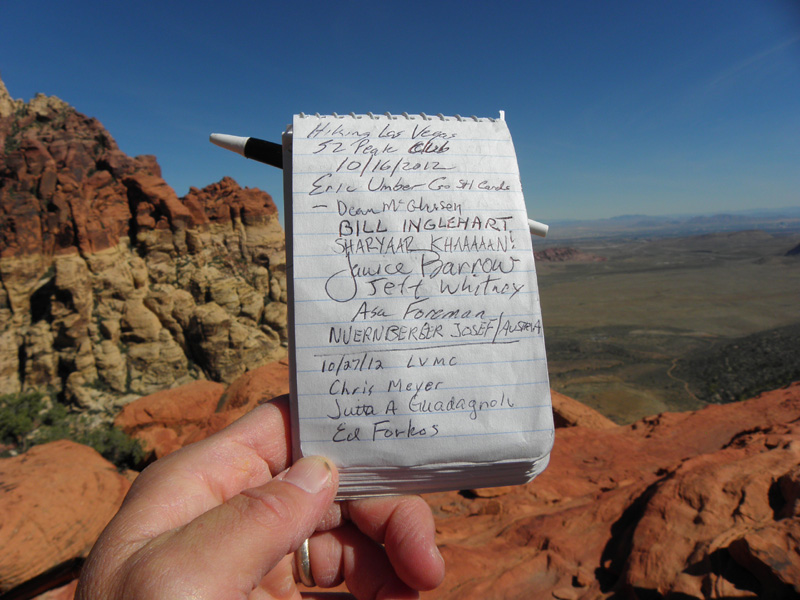 Hiking Las Vegas
52 Peak Club
10/16/2012
Eric Umber Go Stl Cards
- Dean
BILL INGLEHART
SHARYAAR KHAAAAAN!
Janice Barrow
Jeff Whitney
Asa Foreman
NUERNBERGER JOSEF/AUSTRIA
10/27/12 LVMC
Chris Meyer
Jutta A Guadagnoli
Ed Forkos